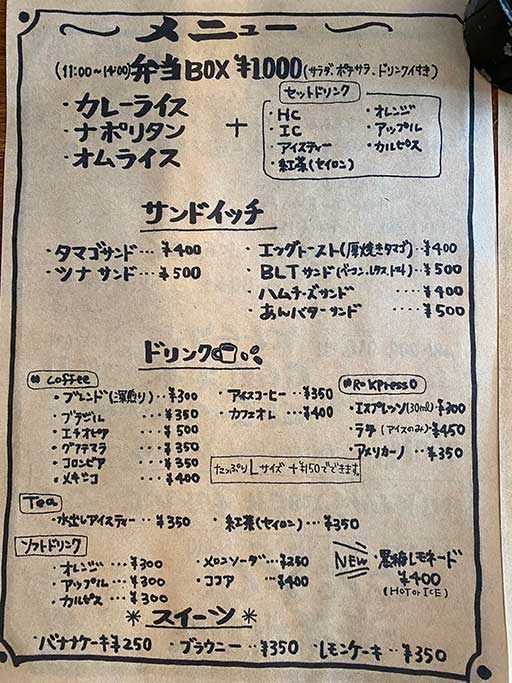 メニュー
(11:00~14:00) 弁当BOX ¥1.000 (サラダ、ポテサラ、ドリンク付き)
・カレーライス
・ナポリタン
・オムライス
+
セットドリンク
・HC ・オレンジ
・IC ・アップル
・アイスティー ・カルピス
・紅茶(セイロン)
サンドイッチ
・タマゴサンド… ¥400 ・エッグトースト(厚焼きタマゴ)‥¥400
・ツナ サンド… ¥500 ・BLTサンド(ベーコン.レタス.トマト)‥¥500
・ハムチーズサンド ‥‥¥400
・あんバターサンド ‥‥¥500
ドリンク
Coffee
・ブレンド(深煎り)‥¥300 ・アイスコーヒー‥¥350
・ブラジル …¥350 ・カフェオレ…¥400
・エチオピア …¥500
・グアテマラ …¥350
・コロンビア …¥350
・メキシコ …¥400
たっぷりLサイズ +¥150でできます。
ROKPRESSO
・エスプレッソ(30ml)‥¥300
・ラテ(アイスのみ)‥¥450
・アメリカーノ ‥¥350
Tea
・水出しアイスティー‥¥350 ・紅茶(セイロン)…¥350
ソフトドリンク
・オレンジ …¥300 ・メロンソーダ‥¥250
・アップル …¥300 ・ココア …¥400
・カルピス …¥300
NEW ・黒糖レモネード
¥400
(HOT or ICE)
＊スイーツ＊
・バナナケーキ¥250 ・ブラウニー…¥350 ・レモンケーキ…¥350